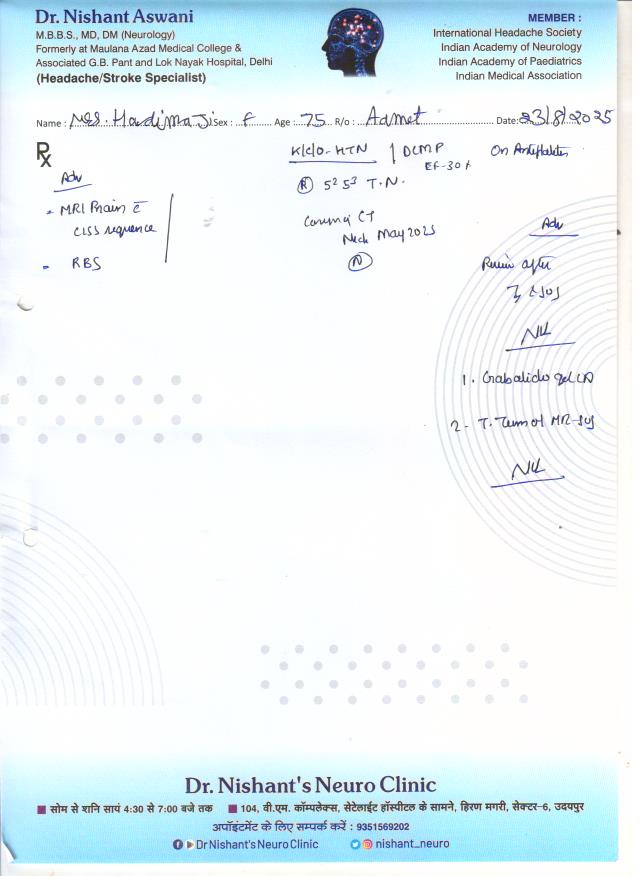 Dr. Nishant Aswani
M.B.B.S., MD, DM (Neurology)
Formerly at Maulana Azad Medical College &
Associated G.B. Pant and Lok Nayak Hospital, Delhi
(Headache/Stroke Specialist)
MEMBER :
International Headache Society
Indian Academy of Neurology
Indian Academy of Paediatrics
Indian Medical Association
Name : Mrs. Ji Sex : F Age : 75 R/o : Aamet Date: 23/8/2025
Rx
Adv
- MRI Brain c̅
CISS sequence
- RBS
K/C/O - HTN / DCMP
EF-30%
On Antiplatelets
(R) T.N.
CT
Neck May 2025
(N)
Adv
Review after
1. gel LA
2- T. MR-SOS
Dr. Nishant's Neuro Clinic
सोम से शनि सायं 4:30 से 7:00 बजे तक
104, वी.एम. कॉम्पलेक्स, सेटेलाईट हॉस्पीटल के सामने, हिरण मगरी, सेक्टर-6, उदयपुर
अपॉइंटमेंट के लिए सम्पर्क करें : 9351569202
Dr Nishant's Neuro Clinic nishant_neuro